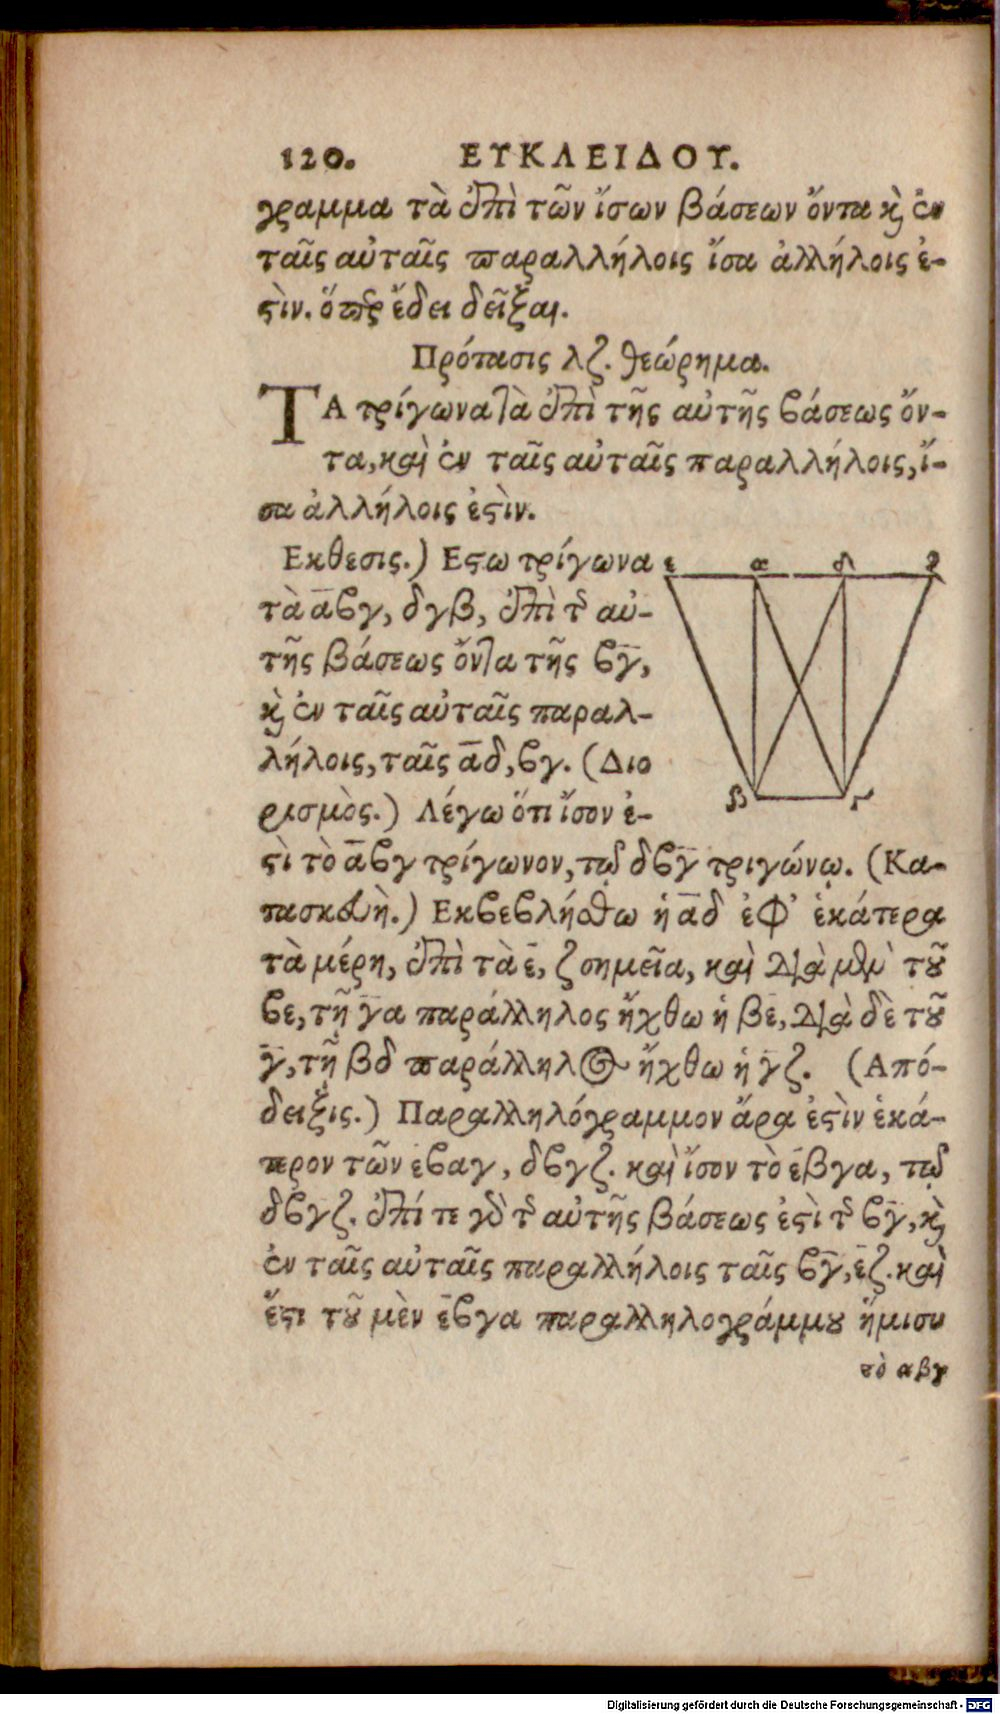 120. ΕΥΚΛΕΙΔΟΥ.
γραμμα τὰ ἐπὶ τῶν ἴσων βάσεων ὄντα κὶ ἐν
ταῖς αὐταῖς παραλλήλοις ἴσα ἀλλήλοις ἐ-
ϛὶν. ὅπερ ἔδει δεῖξαι.
Πρότασις λζ. θεώρημα.
ΤΑ τρίγωνα τὰ ἐπὶ τῆς αὐτῆς βάσεως ὄν-
τα, καὶ ἐν ταῖς αὐταῖς παραλλήλοις, ἴ-
σα ἀλλήλοις ἐϛὶν.
Εκθεσις.) Εϛω τρίγωνα
τὰ α̅βγ, δγβ, ἐπὶ τ῀ αὐ-
τῆς βάσεως ὄντα τῆς βγ̅,
κὶ ἐν ταῖς αὐταῖς παραλ-
λήλοις, ταῖς α̅δ, βγ. (Διο
ρισμὸς.) Λέγω ὅτι ἴσον ἐ-
ϛὶ τὸ α̅βγ τρίγωνον, τῷ δβγ̅ τριγώνῳ. (Κα-
τασκευὴ.) Εκβεβλήσθω ἡ α̅δ ἐφ' ἑκάτερα
τὰ μέρη, ἐπὶ τὰ ε̅, ζ σημεῖα, καὶ Διὰ μὲν τοῦ
βε, τῇ γ̅α παράλληλος ἤχθω ἡ βε̅, Διὰ δὲ τοῦ
γ̅, τῇ βδ παράλληλος ἤχθω ἡ γ̅ζ. (Από-
δειξις.) Παραλληλόγραμμον ἄρα ἐϛὶν ἑκά-
τερον τῶν ε̅βαγ, δβγζ. καὶ ἴσον τὸ ε̅βγα, τῷ
δβγζ. ἐπί τε γὰρ τ῀ αὐτῆς βάσεως ἐϛὶ τ῀ βγ̅, κὶ
ἐν ταῖς αὐταῖς παραλλήλοις ταῖς βγ̅, ε̅ζ. καὶ
ἔϛι τοῦ μὲν ε̅βγα παραλληλογράμμου ἥμισυ
τὸ αβγ
ε α δ ζ
β γ
Digitalisierung gefördert durch die Deutsche Forschungsgemeinschaft - DFG